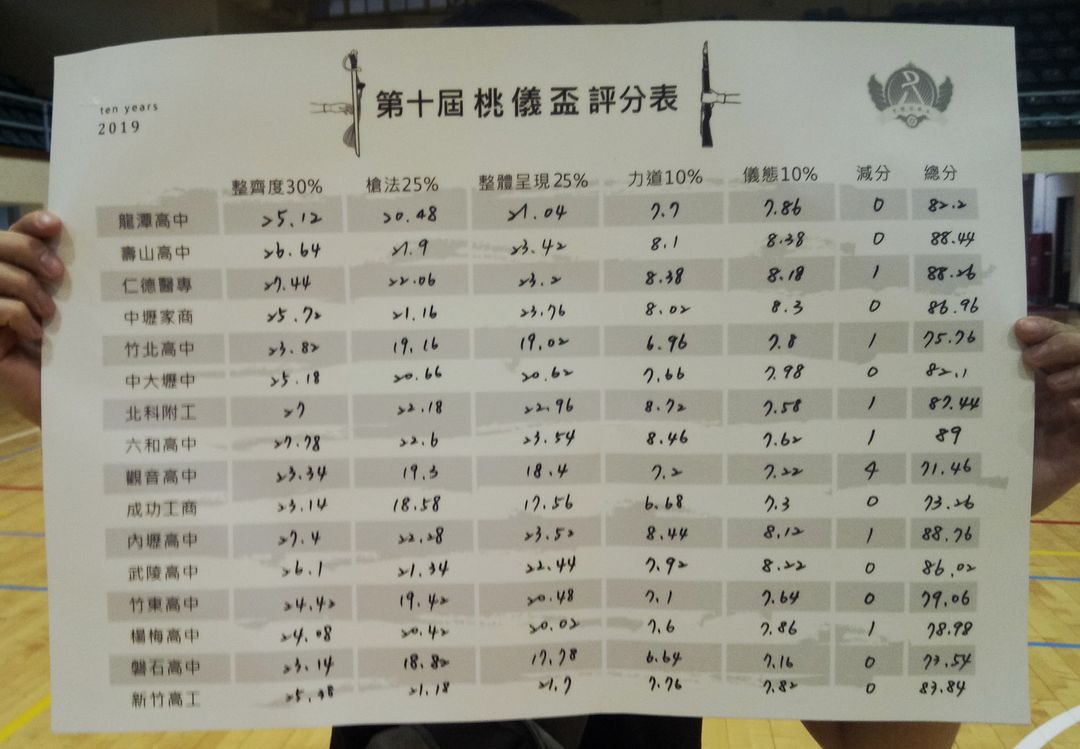 ten years
2019
第十屆桃儀盃評分表
整齊度30% 槍法25% 整體呈現25% 力道10% 儀態10% 減分 總分
龍潭高中 25.12 20.48 21.04 7.7 7.86 0 82.2
壽山高中 26.64 21.9 23.42 8.1 8.38 0 88.44
仁德醫專 27.44 22.06 23.2 8.38 8.18 1 88.26
中壢家商 25.72 21.16 23.76 8.02 8.3 0 86.96
竹北高中 23.82 19.16 19.02 6.96 7.8 1 75.76
中大壢中 25.18 20.66 20.62 7.66 7.98 0 82.1
北科附工 27 22.18 22.96 8.72 7.58 1 87.44
六和高中 27.78 22.6 23.54 8.46 7.62 1 89
觀音高中 23.34 19.3 18.4 7.2 7.22 4 71.46
成功工商 23.14 18.58 17.56 6.68 7.3 0 73.26
內壢高中 27.4 22.28 23.52 8.44 8.12 1 88.76
武陵高中 26.1 21.34 22.44 7.92 8.22 0 86.02
竹東高中 24.42 19.42 20.48 7.1 7.64 0 79.06
楊梅高中 24.08 20.42 20.02 7.6 7.86 1 78.98
磐石高中 23.14 18.82 17.78 6.64 7.16 0 73.54
新竹高工 25.38 21.18 21.7 7.76 7.82 0 83.84